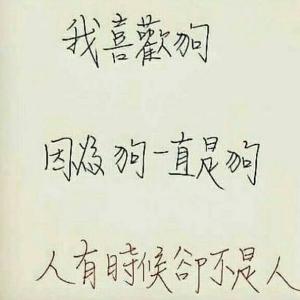 我喜歡狗
因為狗一直是狗
人有時候卻不是人